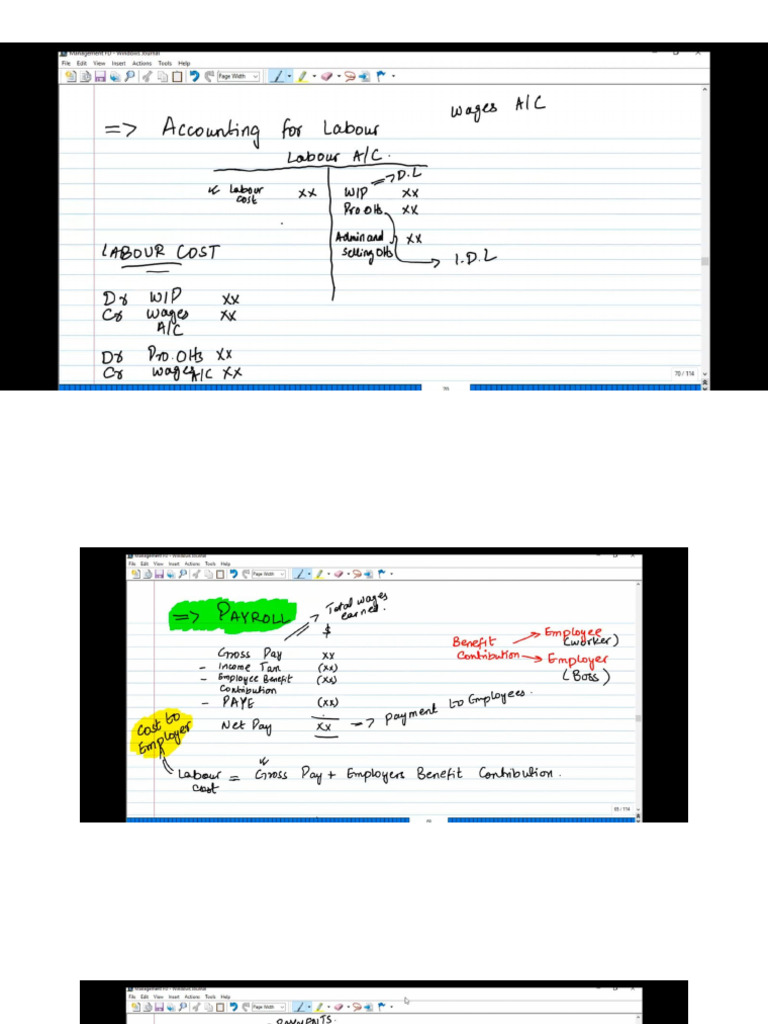 Management FD - Windows Journal
File Edit View Insert Actions Tools Help
Page Width
Wages A/C
=> Accounting for Labour
Labour A/C.
Labour cost xx
WIP => D.L xx
Pro OHs xx
Admin and selling OHs xx
I.D.L
LABOUR COST
Dr WIP xx
Cr Wages A/C xx
Dr Pro. OHs xx
Cr Wages A/C xx
70 / 114
Management FD - Windows Journal
File Edit View Insert Actions Tools Help
Page Width
=> PAYROLL
Total wages earned.
$
Gross Pay xx
- Income Tax (xx)
- Employee Benefit Contribution (xx)
- PAYE (xx)
Net Pay xx => Payment to Employees.
Benefit Contribution
Employee (worker)
Employer (Boss)
Cost to Employer
Labour cost = Gross Pay + Employers Benefit Contribution.
65 / 114
Management FD - Windows Journal
File Edit View Insert Actions Tools Help
Page Width
PAYMENTS.